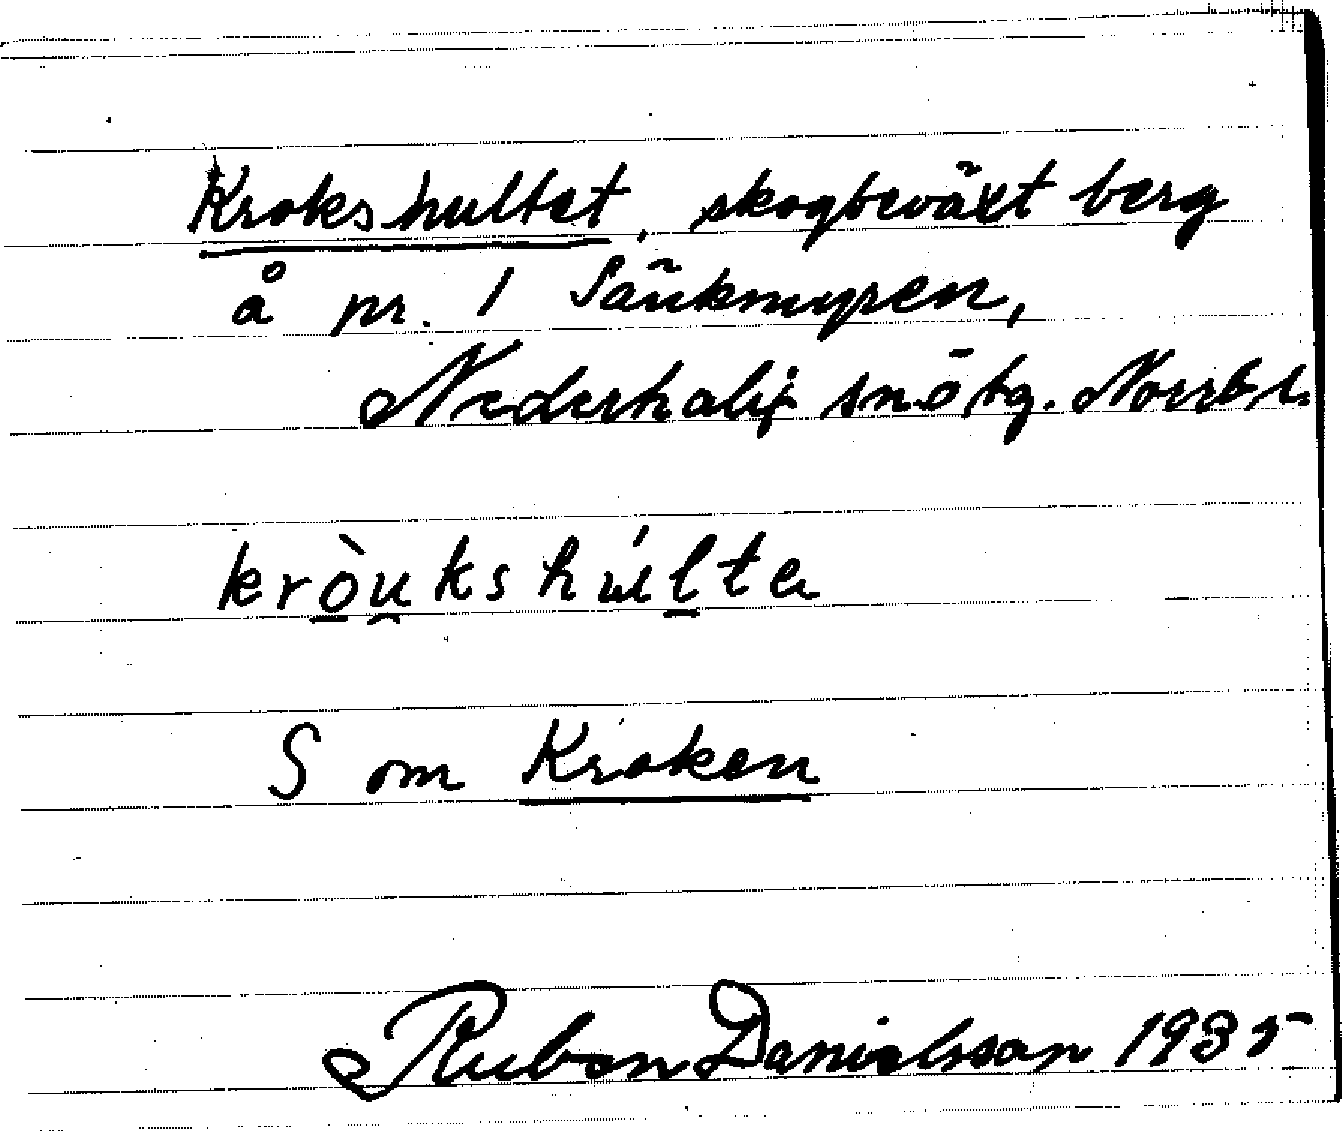 Krokshultet, skogbeväxt berg
å pr. 1 Sänkmyren,
Nederkalix snötg. Norrb l.
kròu̯kshúlta
S om Kroken
Ruben Danielsson 1935